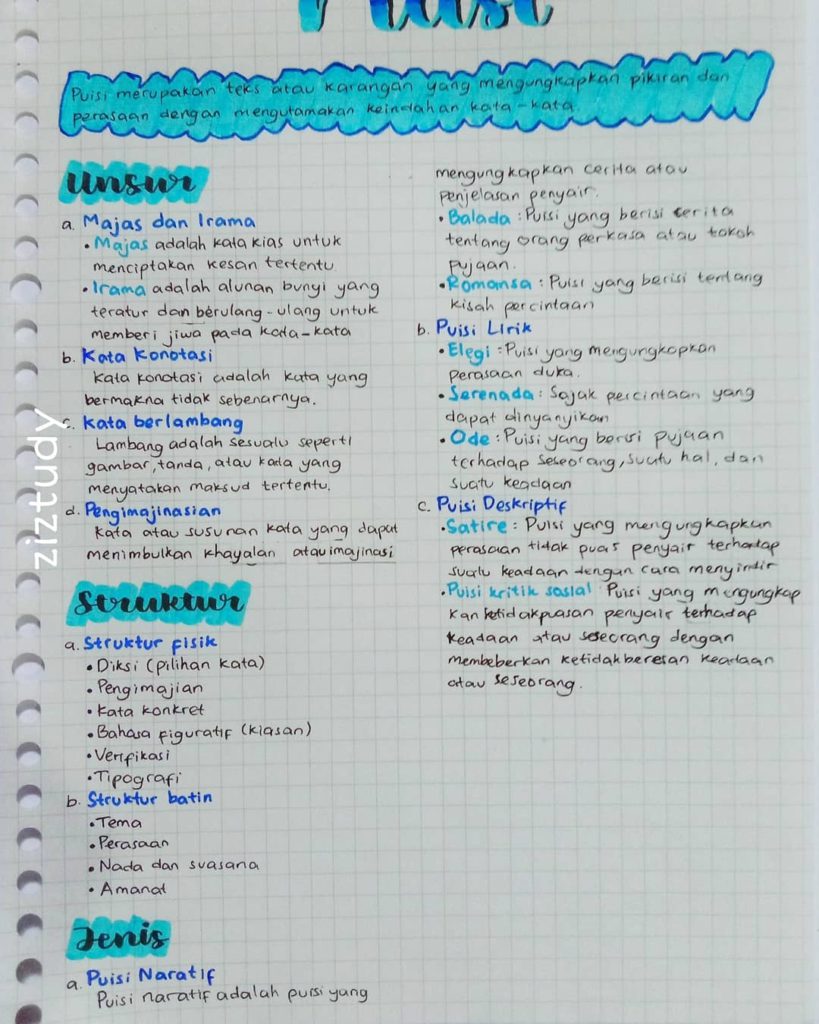 Puisi
Puisi merupakan teks atau karangan yang mengungkapkan pikiran dan
perasaan dengan mengutamakan keindahan kata-kata.
Unsur
a. Majas dan Irama
• Majas adalah kata kias untuk
menciptakan kesan tertentu
• Irama adalah alunan bunyi yang
teratur dan berulang-ulang untuk
memberi jiwa pada kata-kata
b. Kata Konotasi
Kata konotasi adalah kata yang
bermakna tidak sebenarnya.
c. Kata berlambang
Lambang adalah sesuatu seperti
gambar, tanda, atau kata yang
menyatakan maksud tertentu.
d. Pengimajinasian
Kata atau susunan kata yang dapat
menimbulkan khayalan atau imajinasi
Struktur
a. Struktur fisik
• Diksi (pilihan kata)
• Pengimajian
• Kata konkret
• Bahasa figuratif (kiasan)
• Verifikasi
• Tipografi
b. Struktur batin
• Tema
• Perasaan
• Nada dan suasana
• Amanat
Jenis
a. Puisi Naratif
Puisi naratif adalah puisi yang
mengungkapkan cerita atau
penjelasan penyair.
• Balada : Puisi yang berisi cerita
tentang orang perkasa atau tokoh
pujaan.
• Romansa : Puisi yang berisi tentang
kisah percintaan
b. Puisi Lirik
• Elegi : Puisi yang mengungkapkan
perasaan duka.
• Serenada : Sajak percintaan yang
dapat dinyanyikan
• Ode : Puisi yang berisi pujaan
terhadap seseorang, suatu hal, dan
suatu keadaan
c. Puisi Deskriptif
• Satire : Puisi yang mengungkapkan
perasaan tidak puas penyair terhadap
suatu keadaan dengan cara menyindir
• Puisi kritik sosial Puisi yang mengungkap
kan ketidakpuasan penyair terhadap
keadaan atau seseorang dengan
membeberkan ketidakberesan keadaan
atau seseorang.
ziztudy